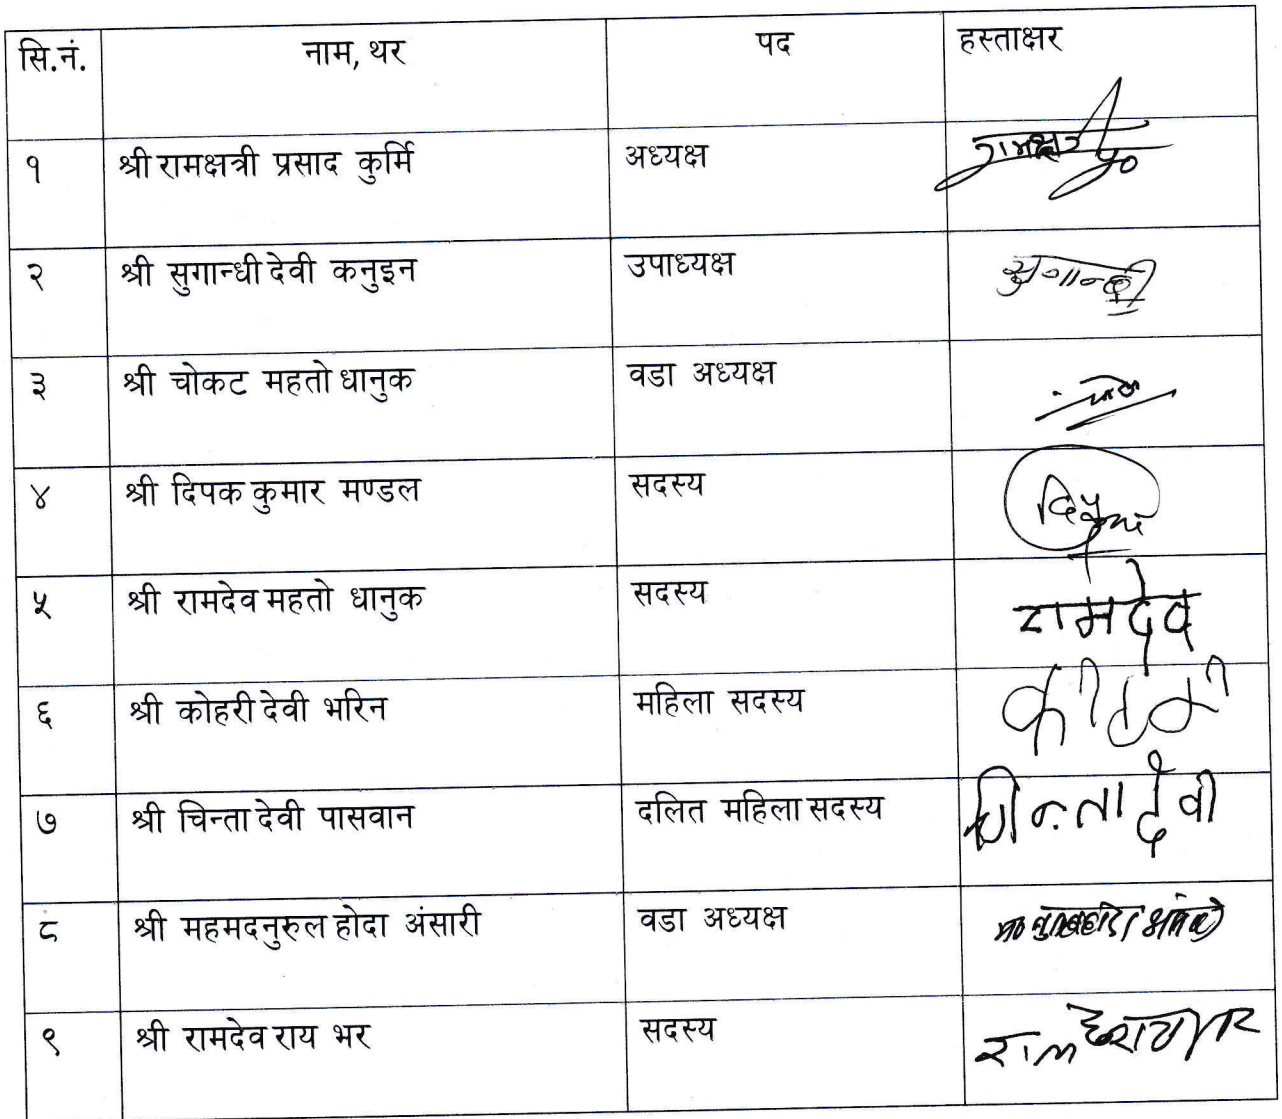 सि.नं. नाम, थर पद हस्ताक्षर
१ श्री रामक्षत्री प्रसाद कुर्मि अध्यक्ष
२ श्री सुगान्धी देवी कनुइन उपाध्यक्ष सुगान्धी
३ श्री चोकट महतो धानुक वडा अध्यक्ष
४ श्री दिपक कुमार मण्डल सदस्य
५ श्री रामदेव महतो धानुक सदस्य रामदेव
६ श्री कोहरी देवी भरिन महिला सदस्य
७ श्री चिन्ता देवी पासवान दलित महिला सदस्य चिन्ता देवी
८ श्री महमदनुरुल होदा अंसारी वडा अध्यक्ष
९ श्री रामदेव राय भर सदस्य